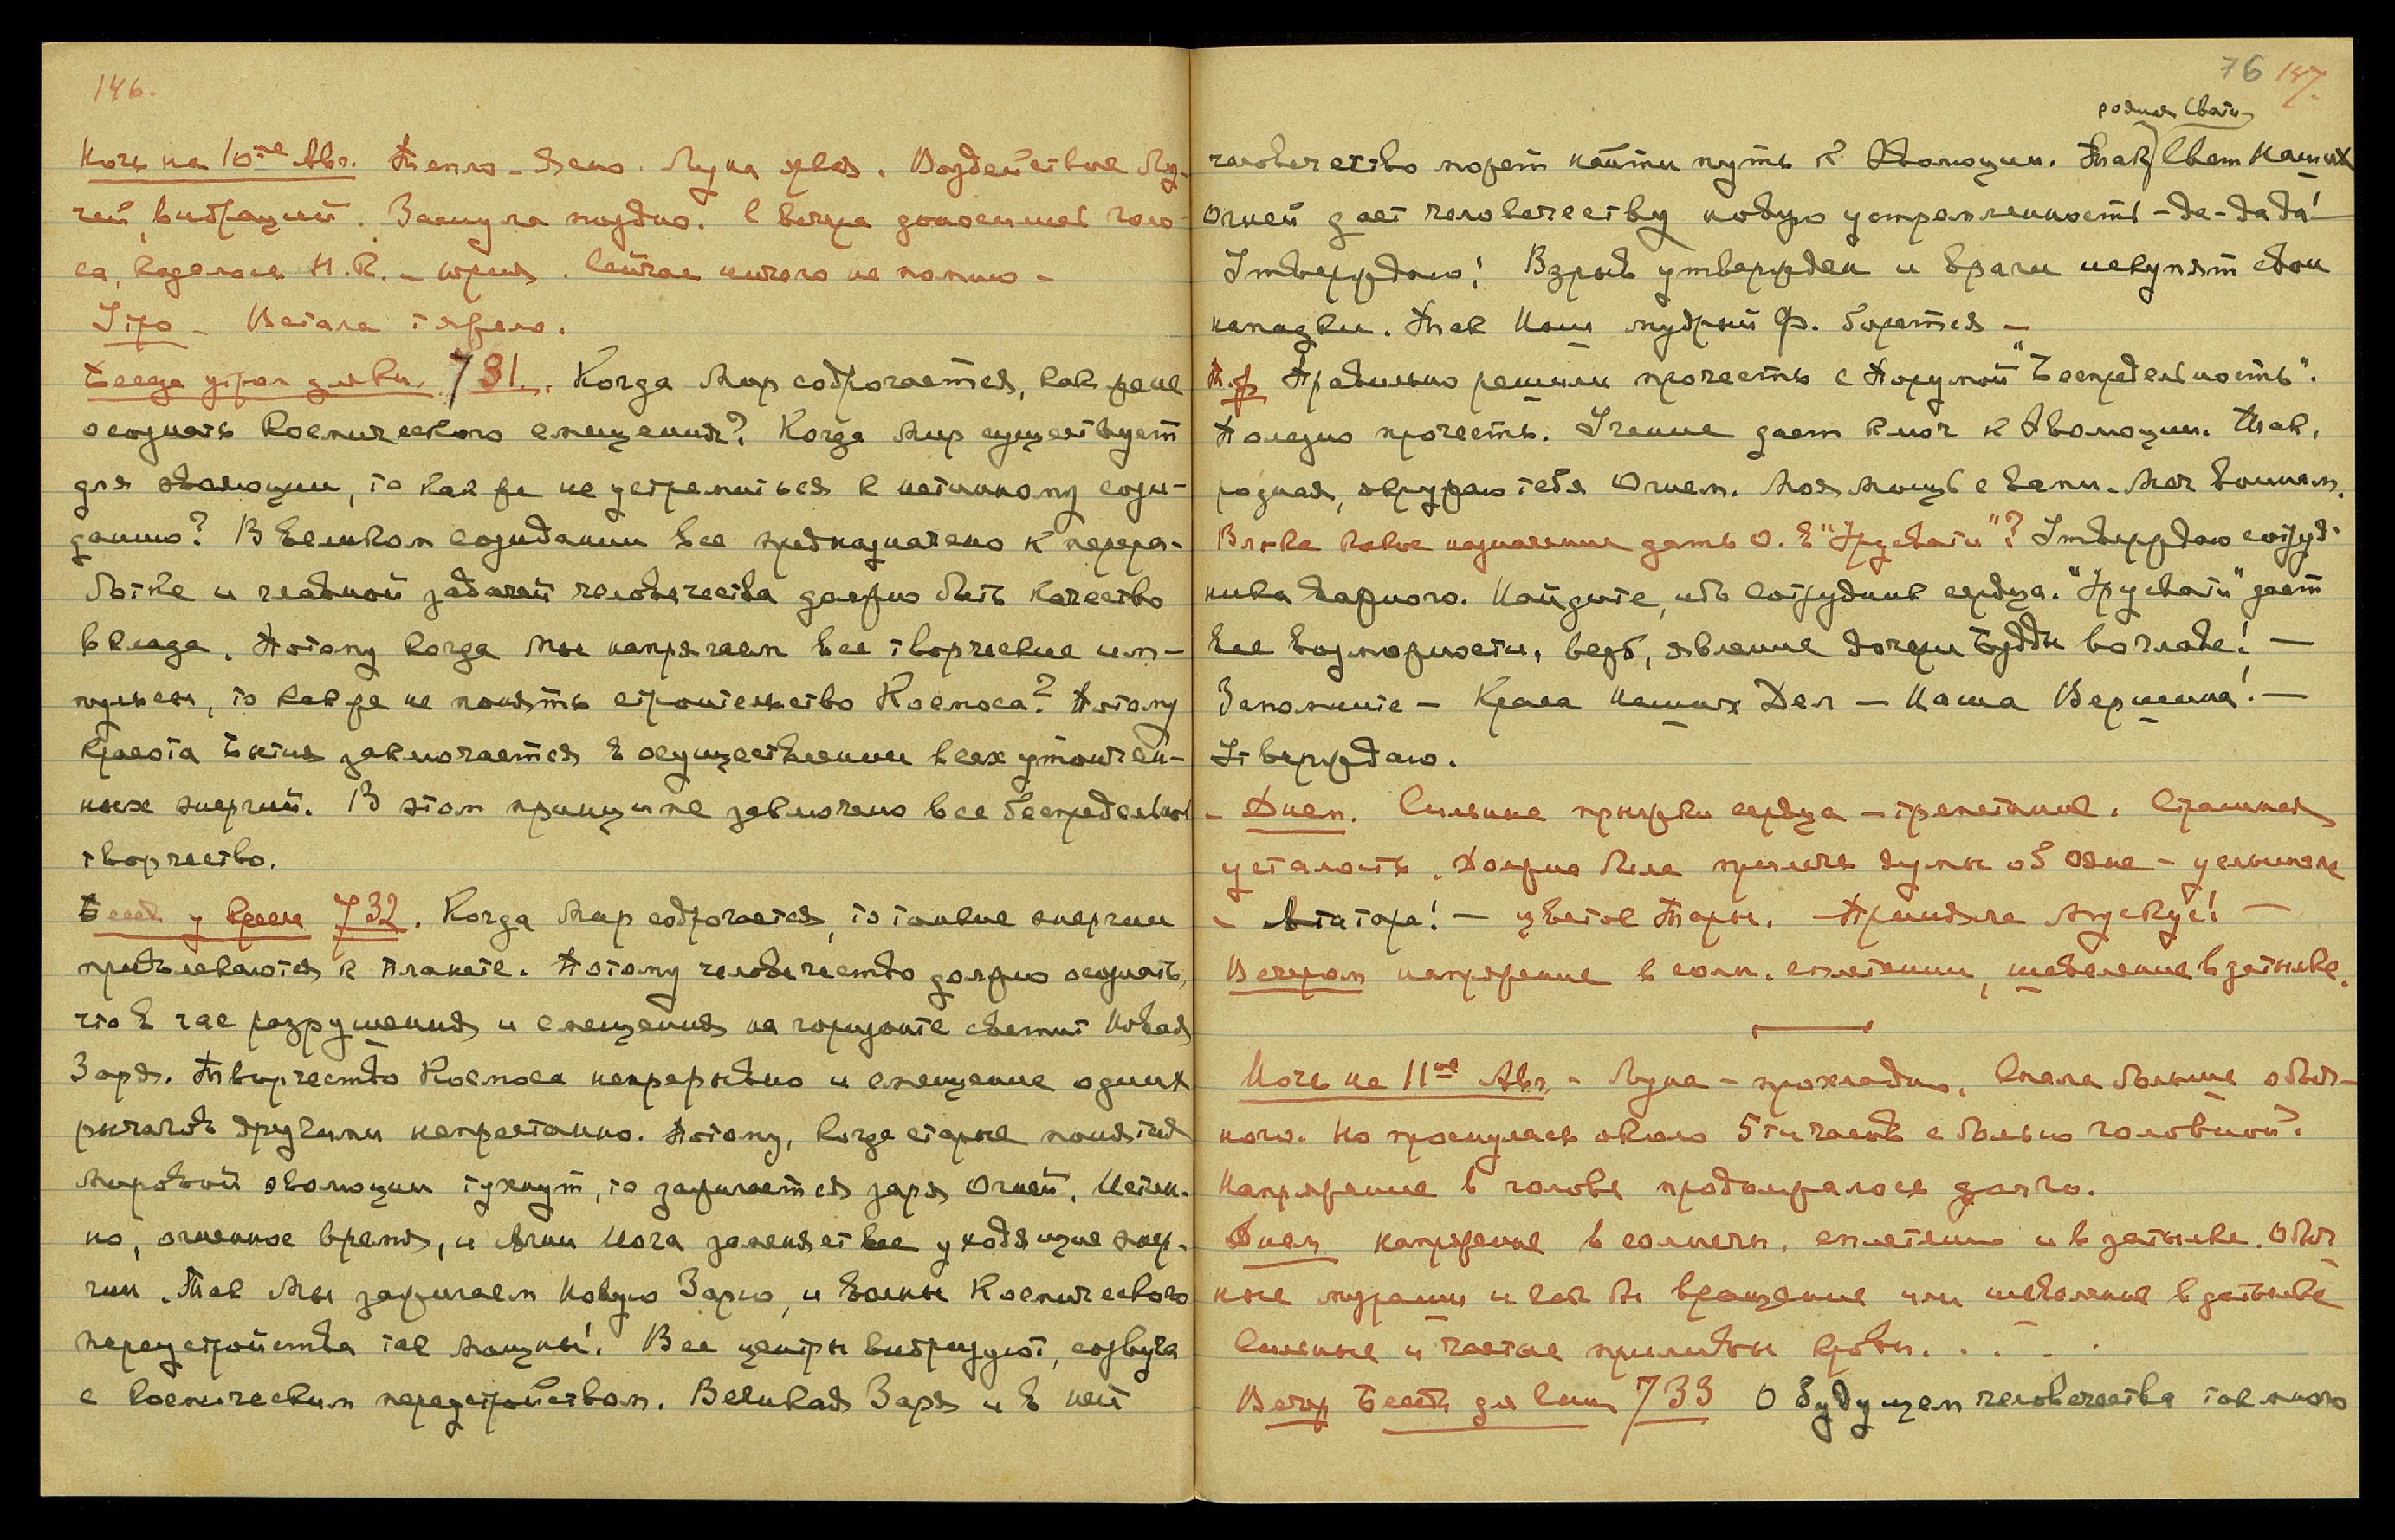 146.
Ночь на 10ое Авг. Тепло - Ясно. Луна ярка. Воздействие Лу-
чей, вибраций. Заснула поздно. С вечера доносились голо-
са, казалось Н.К. - Юрия. Сейчас ничего не помню -
Утро - Встала тяжело.
Беседа утром для кн. 731. Когда Мир содрогается, как же не
осознать Космического смещения? Когда Мир существует
для эволюции, то как же не устремиться к истинному сози-
данию? В Великом созидании все предназначено к перера-
ботке и главной задачей человечества должно быть качество
вклада. Потому когда Мы напрягаем все творческие им-
пульсы, то как же не понять строительство Космоса? Потому
красота Бытия заключается в осуществлении всех утончен-
ных энергий. В этом принципе заключено все беспредельное
творчество.
Беседа у кресла 732. Когда Мир содрогается, то тонкие энергии
привлекаются к планете. Потому человечество должно осознать,
что в час разрушения и смещения на горизонте светит Новая
Заря. Творчество Космоса непрерывно и смещение одних
рычагов другими непрестанно. Потому, когда старые понятия
мировой эволюции тухнут, то зажигается заря Огней. Истин-
но, огненное время, и Агни Йога заменяет все уходящие энер-
гии. Так Мы зажигаем Новую Зарю, и волны Космического
переустройства так мощны! Все центры вибрируют, созвуча
с космическим переустройством. Великая Заря и в ней
76 147.
родная Свати
человечество может найти путь к Эволюции. Так, Свет Наших
Огней дает человечеству новую устремленность - да-да-да!
Утверждаю! Взрыв утвержден и враги искупят свои
нападки. Так Наш мудрый Ф. борется -
Т.ф Правильно решили прочесть с Порумой "Беспредельность".
Полезно прочесть. Учение дает ключ к Эволюции. Так,
родная, окружаю тебя Огнем. Моя мощь с вами. Меч вынем.
Вл-ка какое назначение дать О. в "Урусвати"? Утверждаю сотруд-
ника важного. Найдите, ибо сотрудник сердца. "Урусвати" дает
все возможности, ведь, явление дочери Будды во главе! -
Запомните - Краса Наших Дел - Наша Вершина! -
Утверждаю.
- Днем. Сильные прыжки сердца - трепетание. Страшная
усталость. Должна была прилечь думы об Ояне - услышала
- - цветок Тары. -
Вечером напряжение в солн. сплетении, шевеление в затылке.
Ночь на 11ое Авг. - Луна - прохладно. Спала больше обыч-
ного. Но проснулась около 5ти часов с болью головной.
Напряжение в голове продолжалось долго.
Днем напряжение в солнечн. сплетении и в затылке. Обыч-
ные мураши и как бы вращение или шевеление в затылке
Сильные и частые приливы крови. . . . .
Вечер Беседа для книги 733 О будущем человечества так много